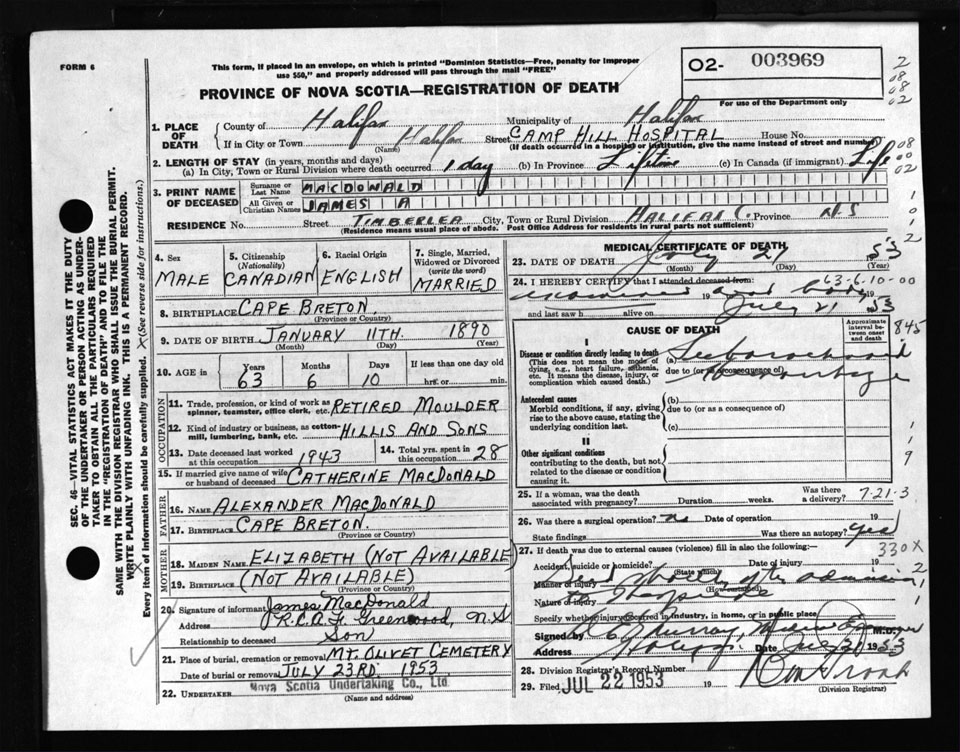 FORM 6
This form, if placed in an envelope, on which is printed "Dominion Statistics—Free, penalty for improper
use $50," and properly addressed will pass through the mail "FREE"
02- 003969
For use of the Department only
PROVINCE OF NOVA SCOTIA—REGISTRATION OF DEATH
2
08
08
02
1. PLACE OF DEATH
County of Halifax Municipality of Halifax
If in City or Town Halifax Street CAMP HILL HOSPITAL House No.
(Name) (If death occurred in a hospital or institution, give the name instead of street and number)
2. LENGTH OF STAY (in years, months and days)
(a) In City, Town or Rural Division where death occurred 1 day (b) In Province Lifetime (c) In Canada (if immigrant) Life
08
00
02
3. PRINT NAME OF DECEASED
Surname or Last Name MACDONALD
All Given or Christian Names JAMES A
RESIDENCE No. Street TIMBERLEA City, Town or Rural Division HALIFAX C. Province N.S
(Residence means usual place of abode. Post Office Address for residents in rural parts not sufficient)
1
0
1
2
4. Sex MALE
5. Citizenship (Nationality) CANADIAN
6. Racial Origin ENGLISH
7. Single, Married, Widowed or Divorced (write the word) MARRIED
8. BIRTHPLACE CAPE BRETON.
(Province or Country)
9. DATE OF BIRTH JANUARY 11TH. 1890
(Month) (Day) (Year)
10. AGE in Years 63 Months 6 Days 10 If less than one day hrs. or min.
OCCUPATION
11. Trade, profession, or kind of work as spinner, teamster, office clerk, etc. RETIRED MOULDER
12. Kind of industry or business, as cotton-mill, lumbering, bank, etc. HILLIS AND SONS
13. Date deceased last worked at this occupation 1943
14. Total yrs. spent in this occupation 28
15. If married give name of wife or husband of deceased CATHERINE MACDONALD
FATHER
16. NAME ALEXANDER MACDONALD
17. BIRTHPLACE CAPE BRETON.
(Province or Country)
MOTHER
18. MAIDEN NAME ELIZABETH (NOT AVAILABLE)
19. BIRTHPLACE (NOT AVAILABLE)
(Province or Country)
20. Signature of informant James MacDonald
Address R.C.A.F. Greenwood, N.S
Relationship to deceased Son
21. Place of burial, cremation or removal MT. OLIVET CEMETERY
Date of burial or removal JULY 23RD. 1953
22. UNDERTAKER Nova Scotia Undertaking Co., Ltd.
(Name and address)
MEDICAL CERTIFICATE OF DEATH
23. DATE OF DEATH July 21 53
(Month) (Day) (Year)
24. I HEREBY CERTIFY that I attended deceased from: 63-6-10-00
examined dead body 19 July 21 53
and last saw h alive on 19
CAUSE OF DEATH
Approximate interval between onset and death
845
I
Disease or condition directly leading to death
(This does not mean the mode of dying, e.g., heart failure, asthenia, etc. It means the disease, injury, or complication which caused death.)
(a) Subarachnoid
due to (or as a consequence of) Hemorrhage
Antecedent causes
Morbid conditions, if any, giving rise to the above cause, stating the underlying condition last.
(b)
due to (or as a consequence of)
(c)
II
Other significant conditions
contributing to the death, but not related to the disease or condition causing it.
1
1
9
25. If a woman, was the death associated with pregnancy? Duration weeks. Was there a delivery? 7-21-3
26. Was there a surgical operation? no Date of operation 19
State findings Was there an autopsy? yes
27. If death was due to external causes (violence) fill in also the following:—
330X
Accident, suicide or homicide? Date of injury 19
(State which)
Manner of injury died shortly after admission
(How sustained)
Nature of injury to Hospital
2
1
1
Specify whether injury occurred in industry, in home, or in public place
Signed by Murray, Medical Examiner M.D.
Address Halifax Date July 21 1953
28. Division Registrar's Record Number
29. Filed JUL 22 1953 19
(Division Registrar)
SEC. 46—VITAL STATISTICS ACT MAKES IT THE DUTY
OF THE UNDERTAKER OR PERSON ACTING AS UNDER-
TAKER TO OBTAIN ALL THE PARTICULARS REQUIRED
IN THE "REGISTRATION OF DEATH" AND TO FILE THE
SAME WITH THE DIVISION REGISTRAR WHO SHALL ISSUE THE BURIAL PERMIT.
WRITE PLAINLY WITH UNFADING INK. THIS IS A PERMANENT RECORD.
Every item of information should be carefully supplied. (See reverse side for instructions.)